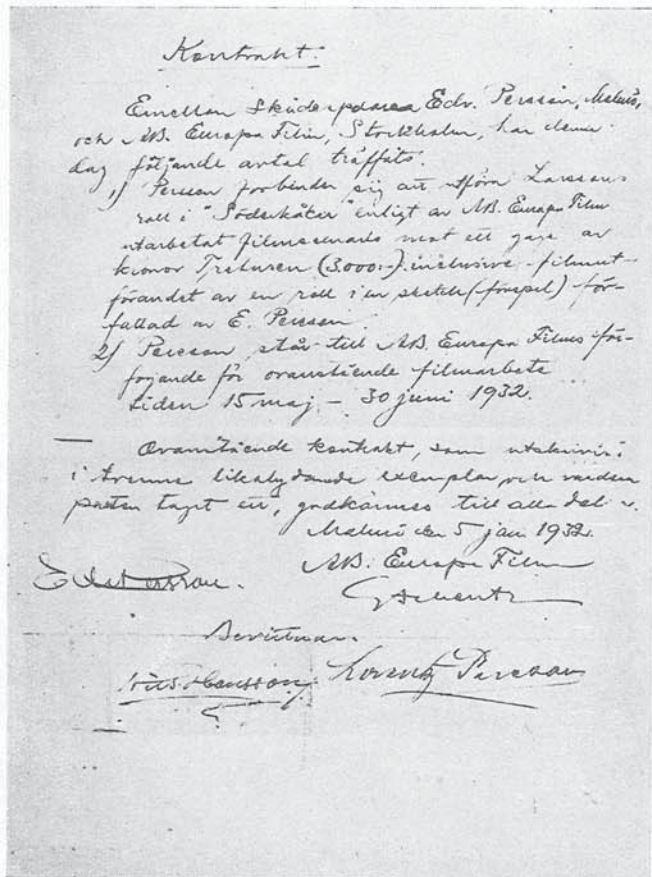 Kontrakt:
Emellan Skådespelaren Edv. Persson, Malmö,
och AB. Europa Film, Stockholm, har denna
dag följande avtal träffats:
1/ Persson förbinder sig att utföra Larssons
roll i "Söderkåkar" enligt av AB. Europa Film
utarbetat filmscenario mot ett gage av
kronor Tretusen (3.000:-) inclusive filmut-
förandet av en roll i en sketch (förspel) för-
fattad av E. Persson.
2/ Persson står till AB. Europa Films för-
fogande för ovanstående filmarbete
tiden 15 maj – 30 juni 1932.
— Ovanstående kontrakt, som utskrivits
i tvenne likalydande exemplar och vardera
parten tagit ett, godkännes till alla delar.
Malmö den 5 jan 1932.
AB. Europa Film
Edv. Persson.
Bevittnas:
Nils Hansson. Lorentz Persson